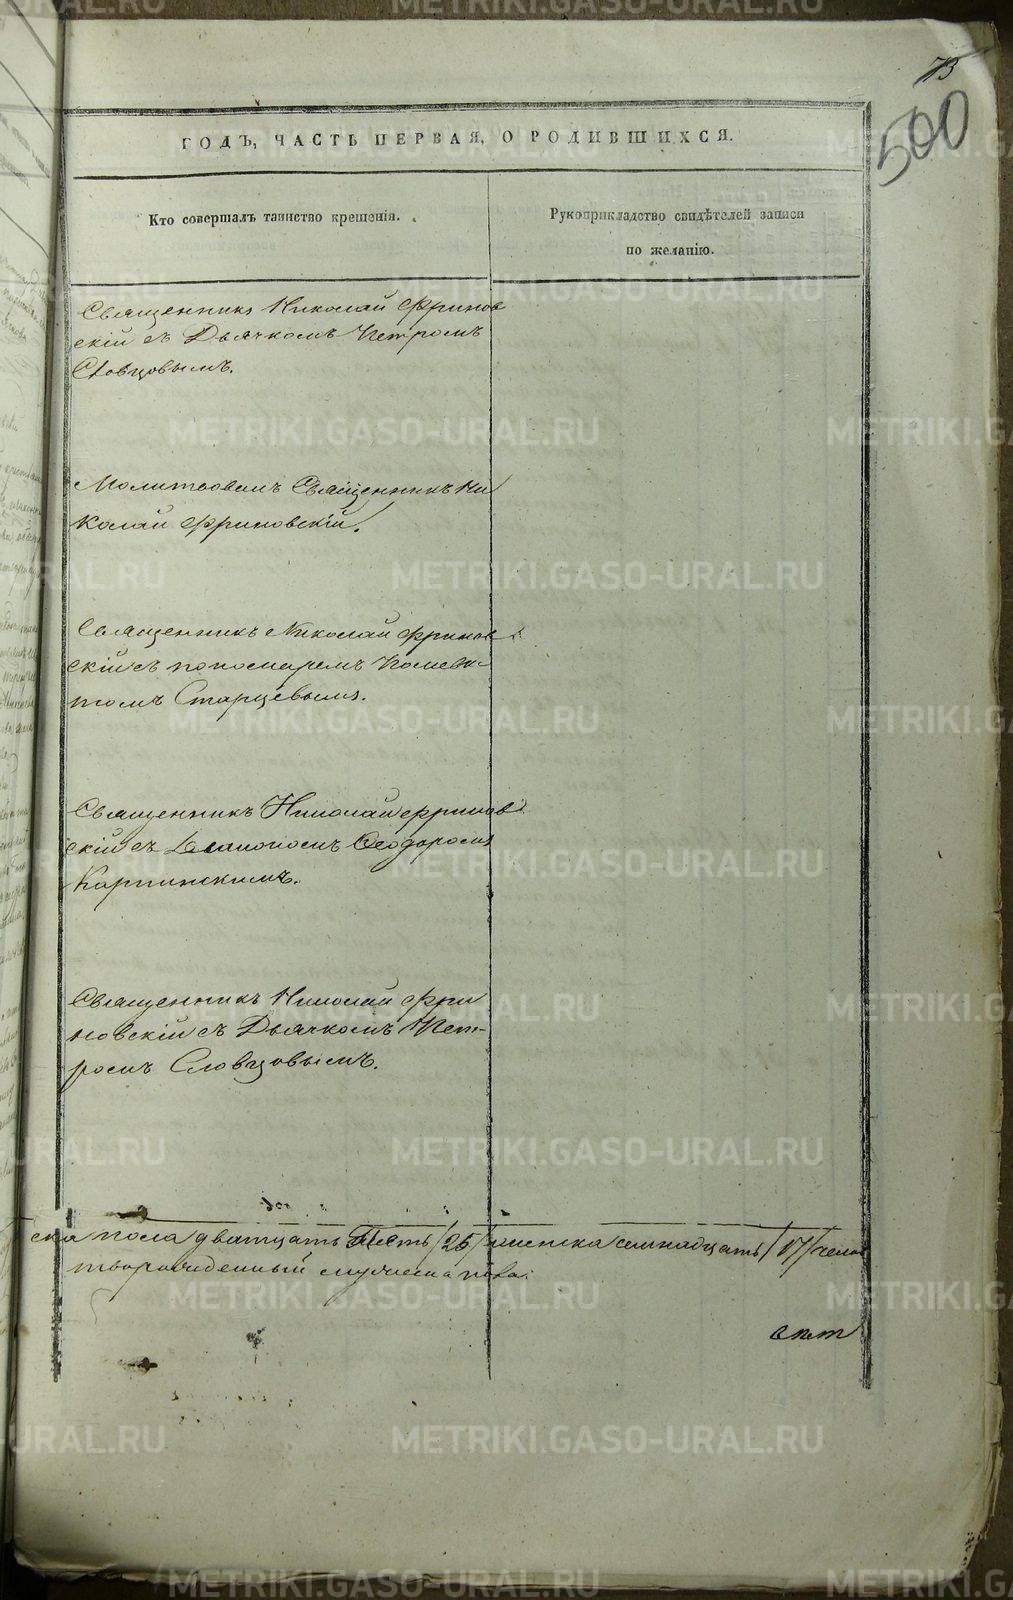 73
500
ГОДЪ, ЧАСТЬ ПЕРВАЯ, О РОДИВШИХСЯ.
Кто совершалъ таинство крещенія.
Рукоприкладство свидѣтелей записи
по желанію.
Священникъ Николай Фринов
скій съ Дьячкомъ Петромъ
Словцовымъ.
Молитвовалъ Священникъ Ни
колай Фриновскій.
Священникъ Николай Фринов
скій съ пономаремъ
Старцевымъ.
Священникъ Николай Фринов
скій съ Діакономъ Ѳеодоромъ
Карпинскимъ.
Священникъ Николай Фри
новскій съ Дьячкомъ Пет-
ромъ Словцовымъ.
ска пола дватцать /25/ женска семнадцать /17/ чело
METRIKI.GASO-URAL.RU